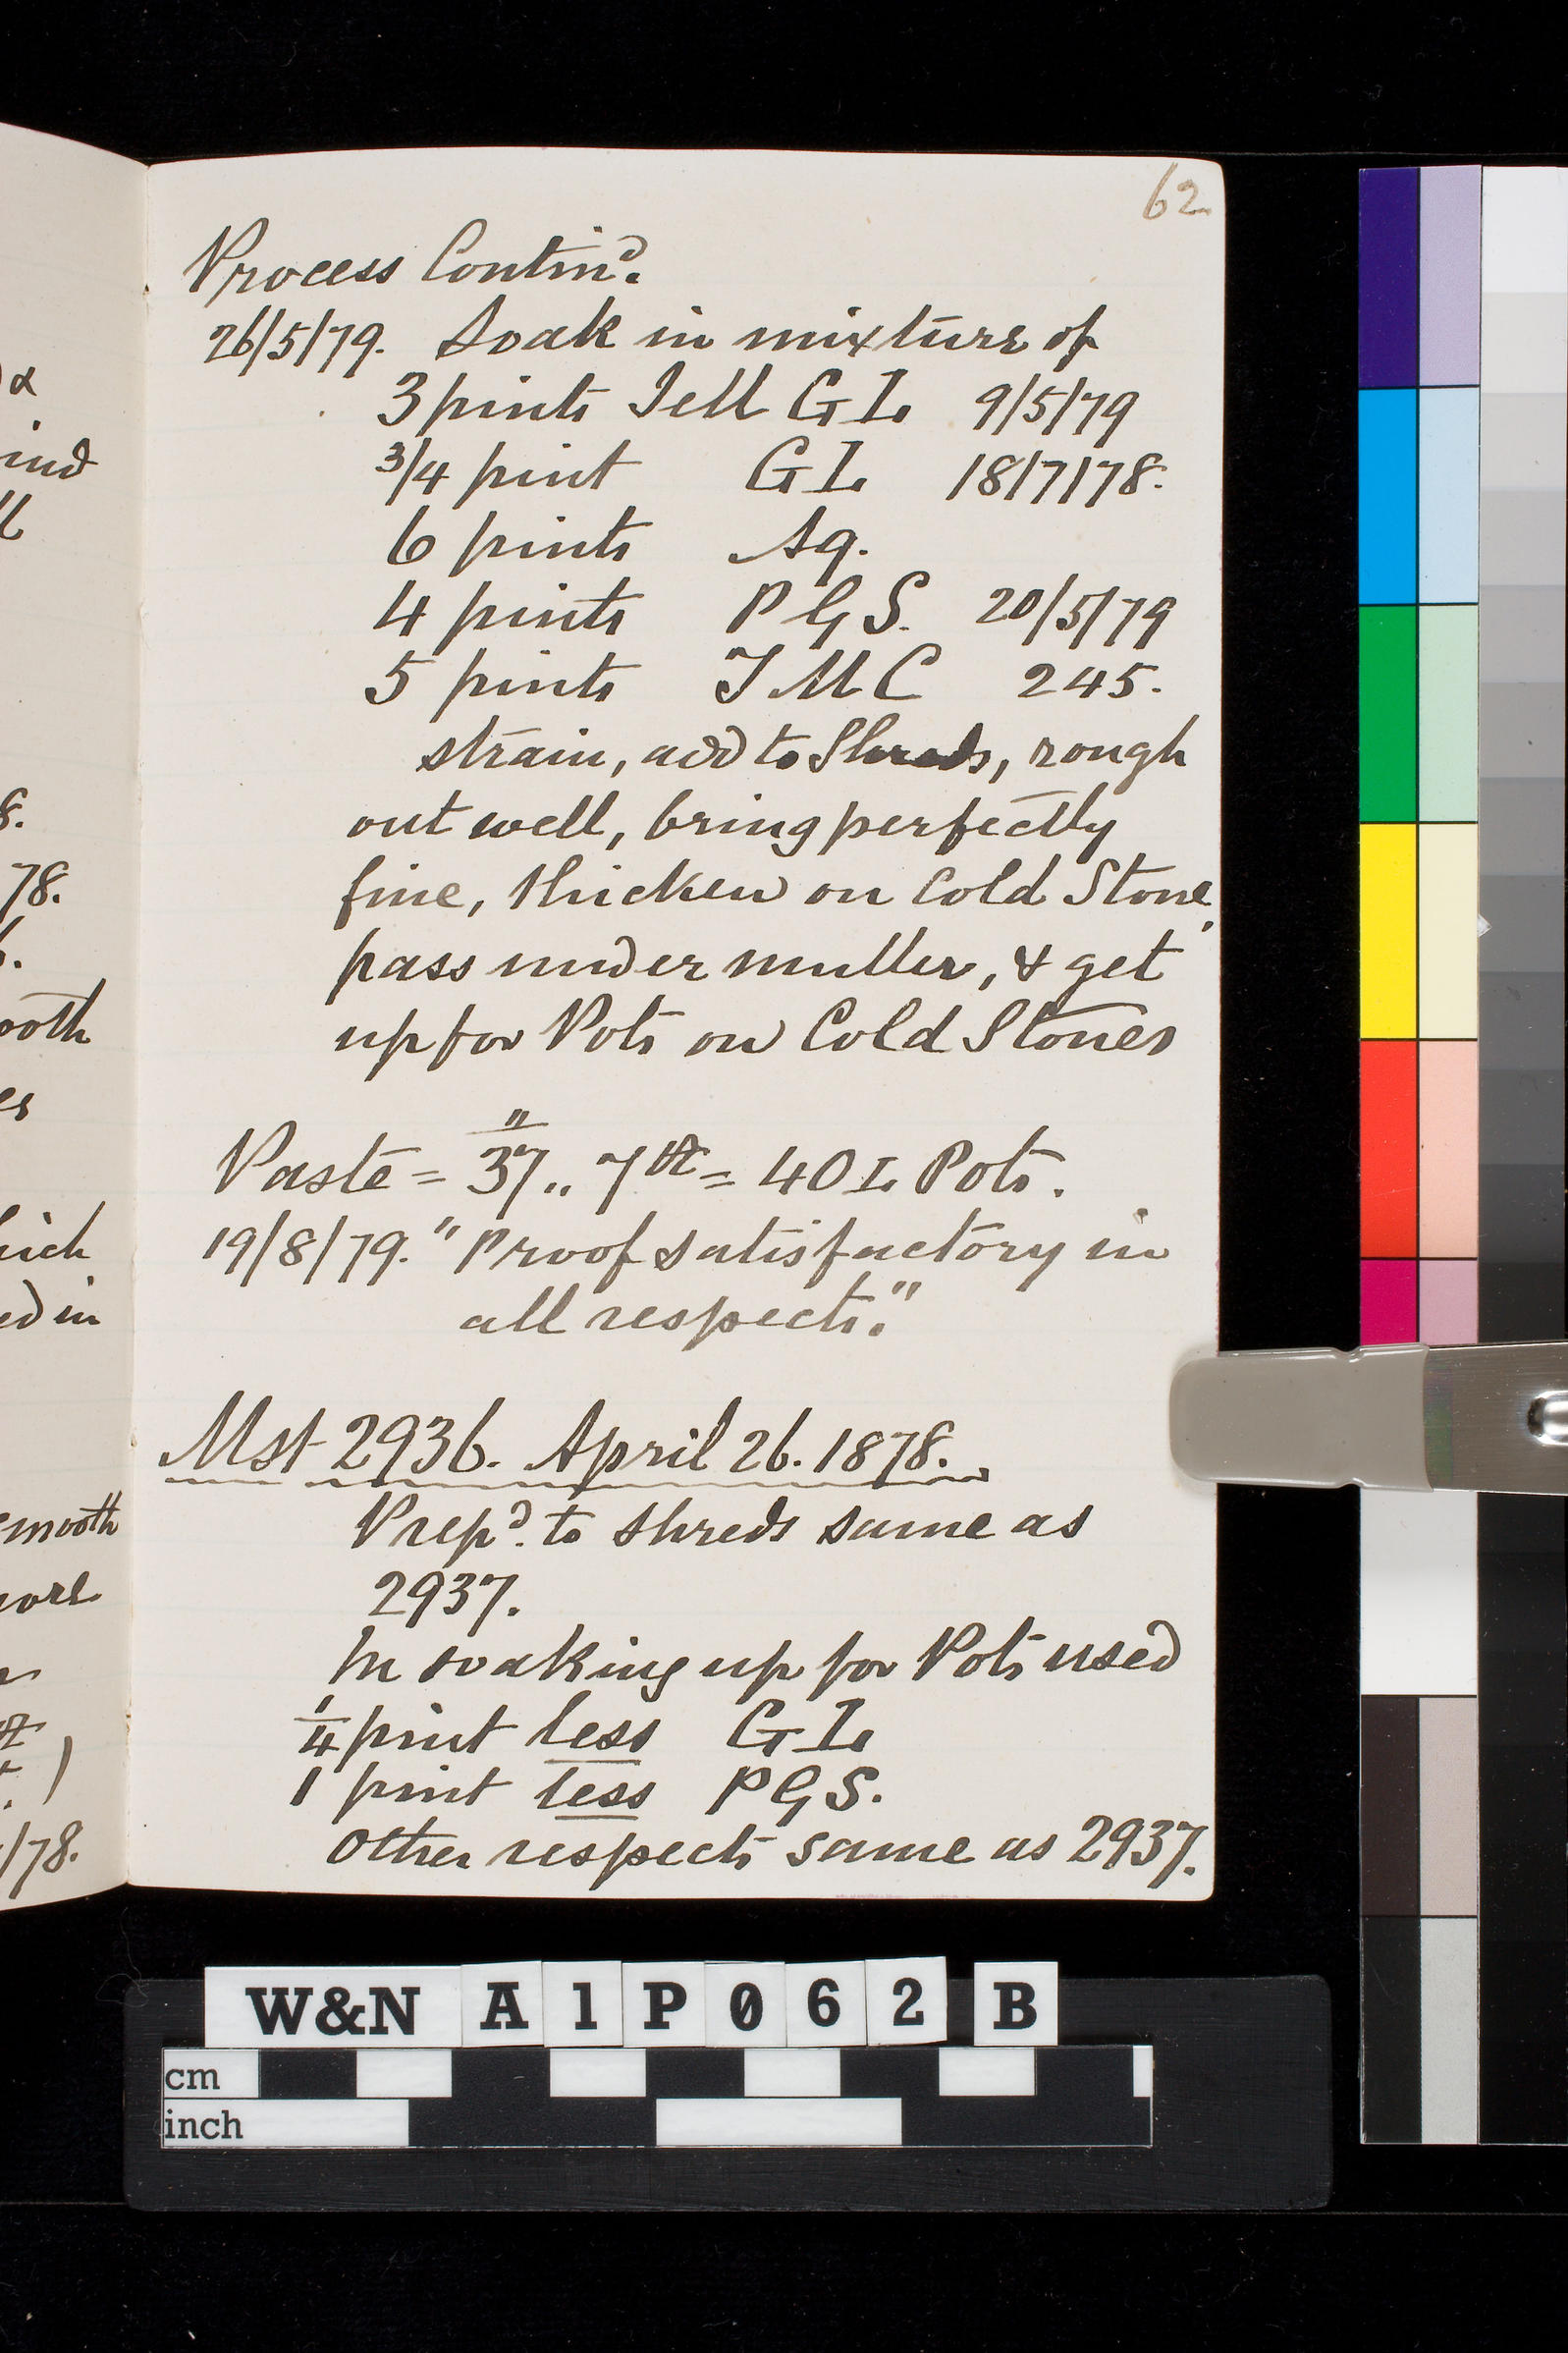 62
Process Contind.
26/5/79. Soak in mixture of
3 pints Jell G L 9/5/79
3/4 pint G L 18/7/78.
6 pints Aq.
4 pints P G S. 20/5/79
5 pints J M C 245.
strain, add to Shreds, rough
out well, bring perfectly
fine, thicken on Cold Stone,
pass under muller, & get
up for Pots on Cold Stones
Paste = 37 " .. 7 = 40 L Pots.
19/8/79. "Proof satisfactory in
all respects."
Mst 2936. April 26. 1878.
Prepd. to shreds same as
2937.
In soaking up for Pots used
1/4 pint less G L
1 pint less P G S.
other respects same as 2937.
α
ind
8.
78.
ooth
es
ich
ed in
smooth
/78.
W&N A1P062 B
cm
inch